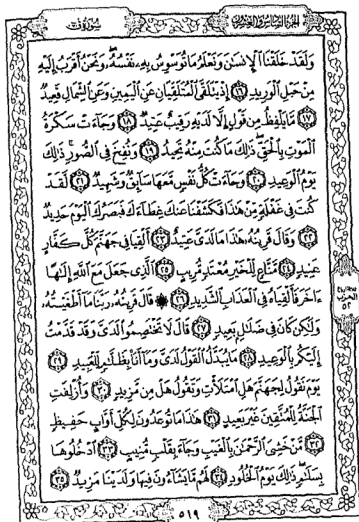 الجزء السادس والعشرون
سورة ق
وَلَقَدْ خَلَقْنَا ٱلْإِنسَٰنَ وَنَعْلَمُ مَا تُوَسْوِسُ بِهِۦ نَفْسُهُۥ وَنَحْنُ أَقْرَبُ إِلَيْهِ
مِنْ حَبْلِ ٱلْوَرِيدِ ١٦ إِذْ يَتَلَقَّى ٱلْمُتَلَقِّيَانِ عَنِ ٱلْيَمِينِ وَعَنِ ٱلشِّمَالِ قَعِيدٌ
١٧ مَّا يَلْفِظُ مِن قَوْلٍ إِلَّا لَدَيْهِ رَقِيبٌ عَتِيدٌ ١٨ وَجَآءَتْ سَكْرَةُ
ٱلْمَوْتِ بِٱلْحَقِّ ذَٰلِكَ مَا كُنتَ مِنْهُ تَحِيدُ ١٩ وَنُفِخَ فِى ٱلصُّورِ ذَٰلِكَ
يَوْمُ ٱلْوَعِيدِ ٢٠ وَجَآءَتْ كُلُّ نَفْسٍ مَّعَهَا سَآئِقٌ وَشَهِيدٌ ٢١ لَّقَدْ
كُنتَ فِى غَفْلَةٍ مِّنْ هَٰذَا فَكَشَفْنَا عَنكَ غِطَآءَكَ فَبَصَرُكَ ٱلْيَوْمَ حَدِيدٌ
٢٢ وَقَالَ قَرِينُهُۥ هَٰذَا مَا لَدَىَّ عَتِيدٌ ٢٣ أَلْقِيَا فِى جَهَنَّمَ كُلَّ كَفَّارٍ
عَنِيدٍ ٢٤ مَّنَّاعٍ لِّلْخَيْرِ مُعْتَدٍ مُّرِيبٍ ٢٥ ٱلَّذِى جَعَلَ مَعَ ٱللَّهِ إِلَٰهًا
ءَاخَرَ فَأَلْقِيَاهُ فِى ٱلْعَذَابِ ٱلشَّدِيدِ ٢٦ ۞ قَالَ قَرِينُهُۥ رَبَّنَا مَآ أَطْغَيْتُهُۥ
وَلَٰكِن كَانَ فِى ضَلَٰلٍۭ بَعِيدٍ ٢٧ قَالَ لَا تَخْتَصِمُوا۟ لَدَىَّ وَقَدْ قَدَّمْتُ
إِلَيْكُم بِٱلْوَعِيدِ ٢٨ مَا يُبَدَّلُ ٱلْقَوْلُ لَدَىَّ وَمَآ أَنَا۠ بِظَلَّٰمٍ لِّلْعَبِيدِ ٢٩
يَوْمَ نَقُولُ لِجَهَنَّمَ هَلِ ٱمْتَلَأْتِ وَتَقُولُ هَلْ مِن مَّزِيدٍ ٣٠ وَأُزْلِفَتِ
ٱلْجَنَّةُ لِلْمُتَّقِينَ غَيْرَ بَعِيدٍ ٣١ هَٰذَا مَا تُوعَدُونَ لِكُلِّ أَوَّابٍ حَفِيظٍ
٣٢ مَّنْ خَشِىَ ٱلرَّحْمَٰنَ بِٱلْغَيْبِ وَجَآءَ بِقَلْبٍ مُّنِيبٍ ٣٣ ٱدْخُلُوهَا
بِسَلَٰمٍ ذَٰلِكَ يَوْمُ ٱلْخُلُودِ ٣٤ لَهُم مَّا يَشَآءُونَ فِيهَا وَلَدَيْنَا مَزِيدٌ ٣٥
الحزب
٥٢
٥١٩